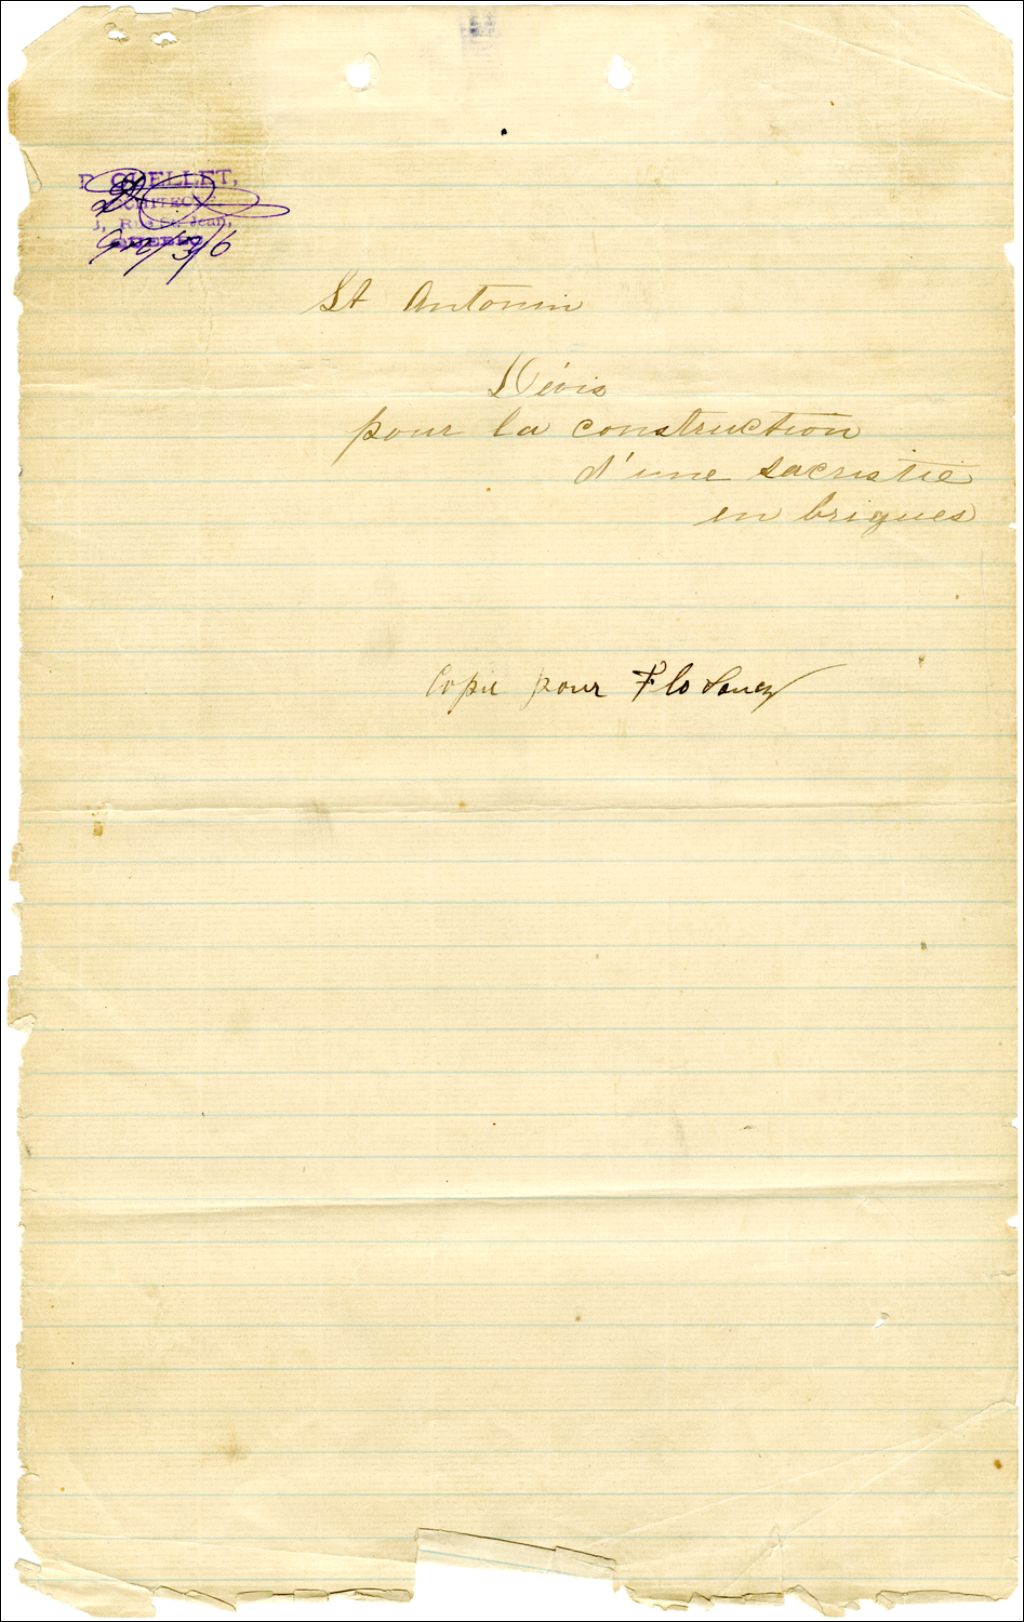 OUELLET,
ARCHITECTE
Rue St. Jean,
QUEBEC
St Antonin
Dévis
pour la construction
d'une sacristie
en briques
Copie pour